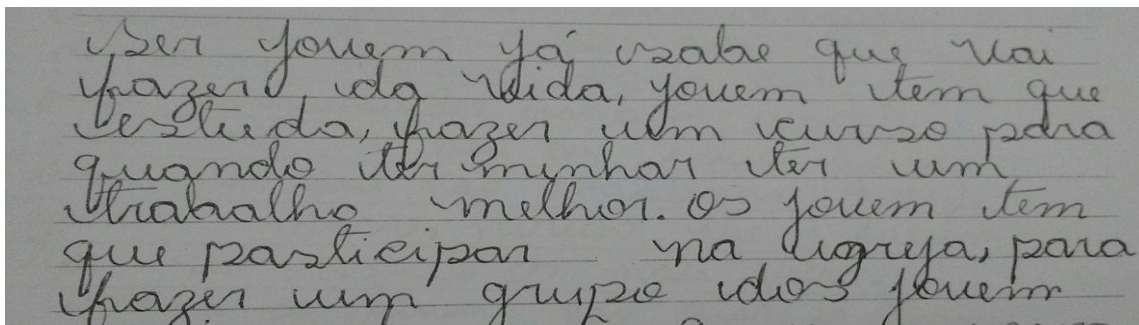 Ser jovem já sabe que vai
fazer da vida, jovem tem que
estuda, fazer um curso para
quando ter minhar ter um
trabalho melhor. os jovem tem
que participar na igreja, para
fazer um grupo dos jovem